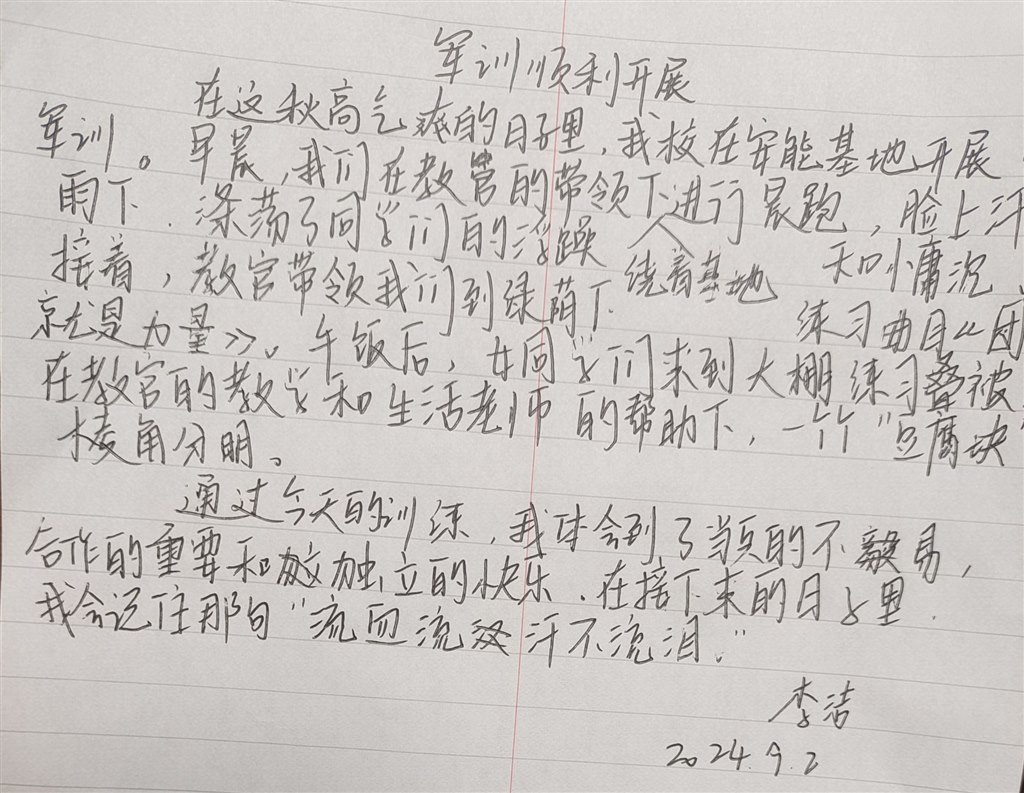 军训顺利开展
在这秋高气爽的日子里,我校在安能基地开展
军训。早晨,我们在教官的带领下进行晨跑,脸上汗
雨下.涤荡了同学们的浮躁 人 绕着基地 和慵沉、
接着,教官带领我们到绿荫下 练习曲目《团
就是力量》。午饭后,女同学们来到大棚练习叠被
在教官的教学和生活老师的帮助下,一个个"豆腐块"
棱角分明。
通过今天的训练,我体会到了的不易,
合作的重要和独立的快乐.在接下来的日子里.
我会记住那句"流血流汗不流泪."
李洁
2024.9.2